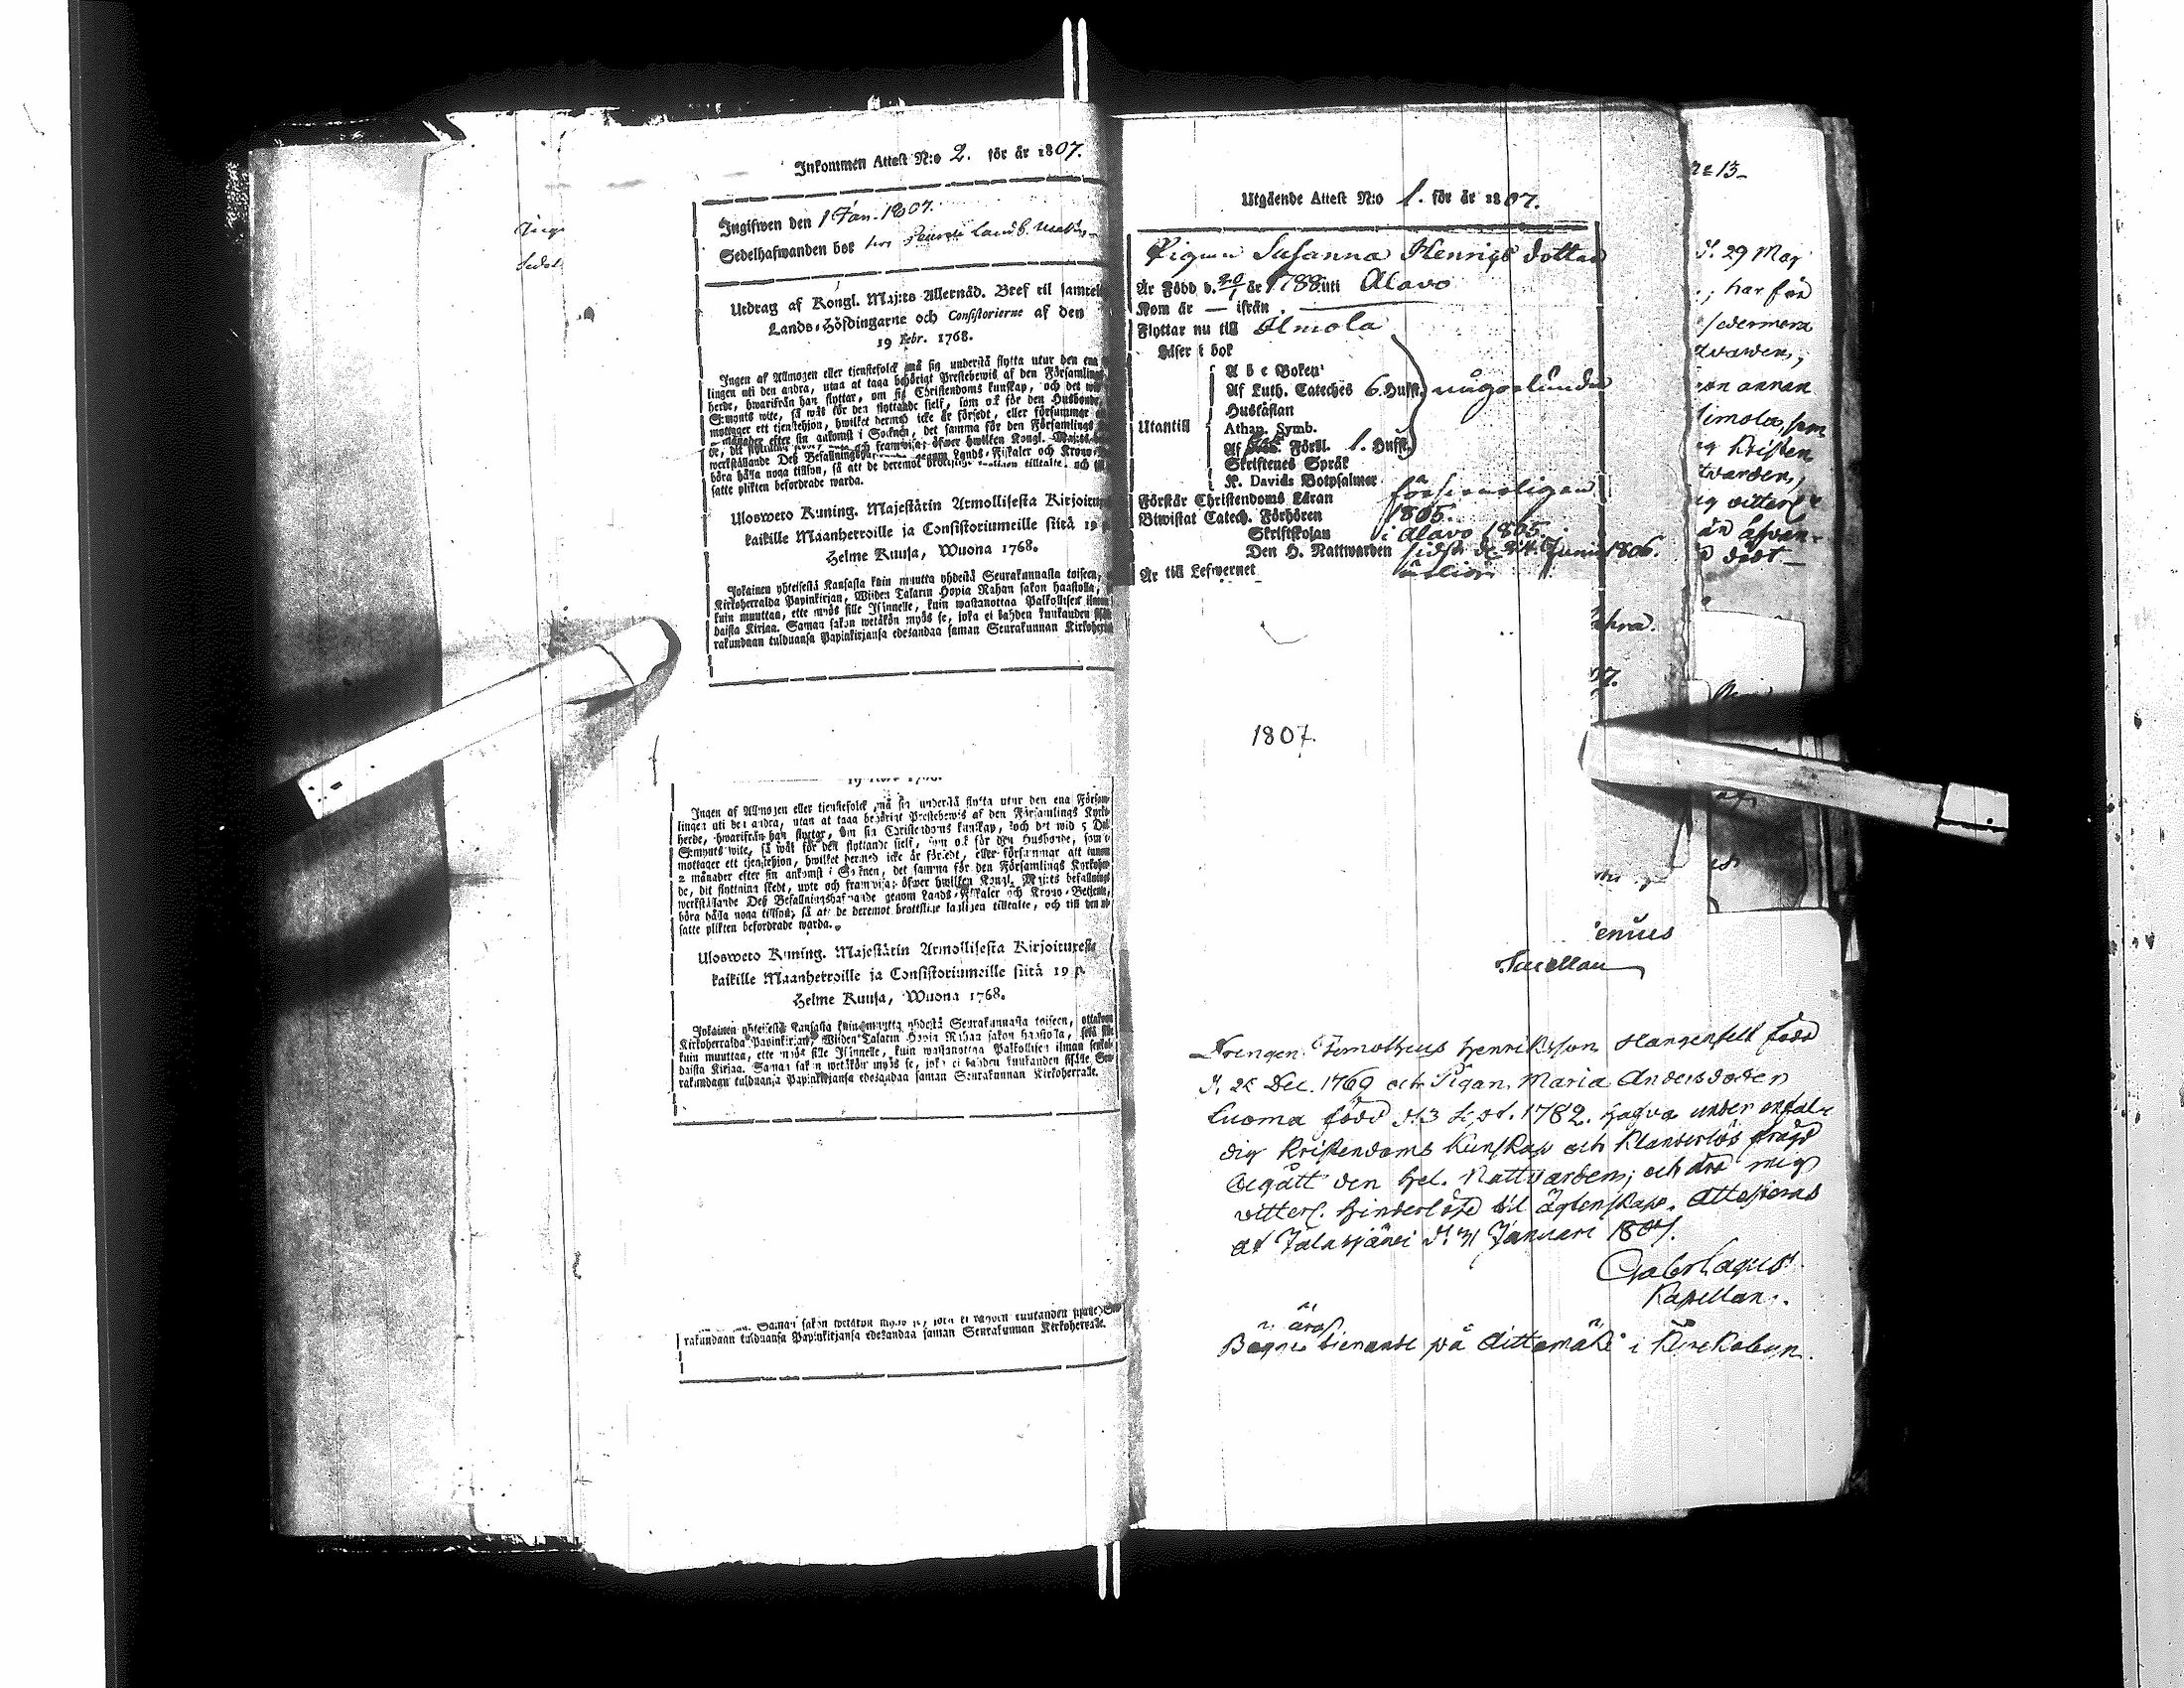 Inkommen Attest N:o 2. för år 1807.
Ingifwen den 1 Jan. 1807.
Sedelhafwanden bor hos
Utdrag af Kongl. Maj:ts Allernåd. Bref til samtel
Lands-Höfdingarne och Consistorierne af den
19 Febr. 1768.
Ingen af Allmogen eller tjenstefolck må sig understå flytta utur den ena
lingen uti den andra, utan at taga behörigt Prestebewis af den Församlings
herde, hwarifrån han flyttar, om sin Christendoms kunskap, och det wid
S:mynts wite, så wäl för den flyttande sielf, som ock för den Husbonde,
mottager ett tjenstehjon, hwilket dermed icke är försedt, eller försummar
månader efter sin ankomst i Socknen, det samma för den Församlings
de, dit flyttning och framwisa; öfwer hwilken Kongl. Maj:ts
werkställande Deß Befallningshafwande genom Lands-Fiskaler och Krono
böra hålla noga tillsyn, så att de deremot brottslige lagligen tilltalte, och till
satte plikten befordrade warda.
Uloswero Kuning. Majestätin Armollisesta Kirjoitux
kaikille Maanherroille ja Consistoriumeille siitä 19 p.
Helme Kuusa, Wuona 1768.
Jokainen yhteisestä Kansasta kuin muutta yhdestä Seurakunnasta toiseen,
Kirkoherralda Papinkirjan, Wiiden Talarin Hopia Rahan sakon haastolla,
kuin muuttaa, ette myös sille Isännelle, kuin wastanottaa Palkollisen ilman
daista Kirjaa. Saman sakon wetäkön myös se, joka ei kahden kuukauden
rakundaan tulduansa Papinkirjansa edesandaa saman Seurakunnan Kirkoherra
Ingen af Allmogen eller tjenstefolck må sig understå flytta utur den ena Försam-
lingen uti den andra, utan at taga behörigt Prestebewis af den Församlings Kyrko-
herde, hwarifrån han flyttar, om sin Christendoms kunskap, och det wid 5 Dal.
S:mynts wite, så wäl för den flyttande sielf, som ock för den Husbonde, som
mottager ett tjenstehjon, hwilket dermed icke är försedt, eller försummar att innom
2 månader efter sin ankomst i Socknen, det samma för den Församlings Kyrkoher-
de, dit flyttning skedt, upte och framwisa; öfwer hwilken Kongl. Maj:ts befallnings
werkställande Deß Befallningshafwande genom Lands-Fiskaler och Krono-Betjente,
böra hålla noga tillsyn, så att de deremot brottslige lagligen tilltalte, och till den ut-
satte plikten befordrade warda.
Uloswero Kuning. Majestätin Armollisesta Kirjoituxesta
kaikille Maanherroille ja Consistoriumeille siitä 19 p.
Helme Kuusa, Wuona 1768.
Jokainen yhteisestä Kansasta kuin muutta yhdestä Seurakunnasta toiseen, ottakoon
Kirkoherralda Papinkirjan, Wiiden Talarin Hopia Rahan sakon haastolla, sekä sille
kuin muuttaa, ette myös sille Isännelle, kuin wastanottaa Palkollisen ilman senkal-
daista Kirjaa. Saman sakon wetäkön myös se, joka ei kahden kuukauden sisälle Seu-
rakundaan tulduansa Papinkirjansa edesandaa saman Seurakunnan Kirkoherralle.
Saman sakon wetäkön myös se, joka ei kahden kuukauden sisälle Seu-
rakundaan tulduansa Papinkirjansa edesandaa saman Seurakunnan Kirkoherralle.
Utgående Attest N:o 1. för år 1807.
Pigan Susanna Henrigs dotter
Är Född d. 20/1 år 1788 uti Alavo
Kom år — ifrån
Flyttar nu till Ilmola
Läser i bok
A b c Boken
Af Luth. Cateches 6. Hufst. någorlunda
Hustaflan
Utantill
Athan. Symb.
Af Förkl. 1. Hufst.
Skriftenes Språk
K. Davids Botpsalmer
Förstår Christendoms Läran försvarligen
Biwistat Catech. Förhören 1805.
Skriftskolan i Alavo 1805.
Den H. Nattwarden sidst d. 24. Junii 1806.
Är till Lefwernet
1807.
enius
Drengen Timotheus Henriksson Hangenfelt född
d. 22 Dec. 1769 och Pigan Maria Andersdotter
Luoma född d. 3 Sept. 1782. hafva under enfal-
dig Kristendoms Kunskap och Klanderlös frägd
begått den Hel. Nattvarden; och äro mig
vitterl. hinderlöse til ägtenskap. Attesteras
af Jalasjärvi d. 31 Januari 1807.
Gab. Lagus
Kapellan.
äro
Bägge tienande på Aittomäki i Kyrkobyn.
n:e 13
d. 29 May
; har före
sedermera
varden,
en annan
Ilmola, som
varden,
dödt